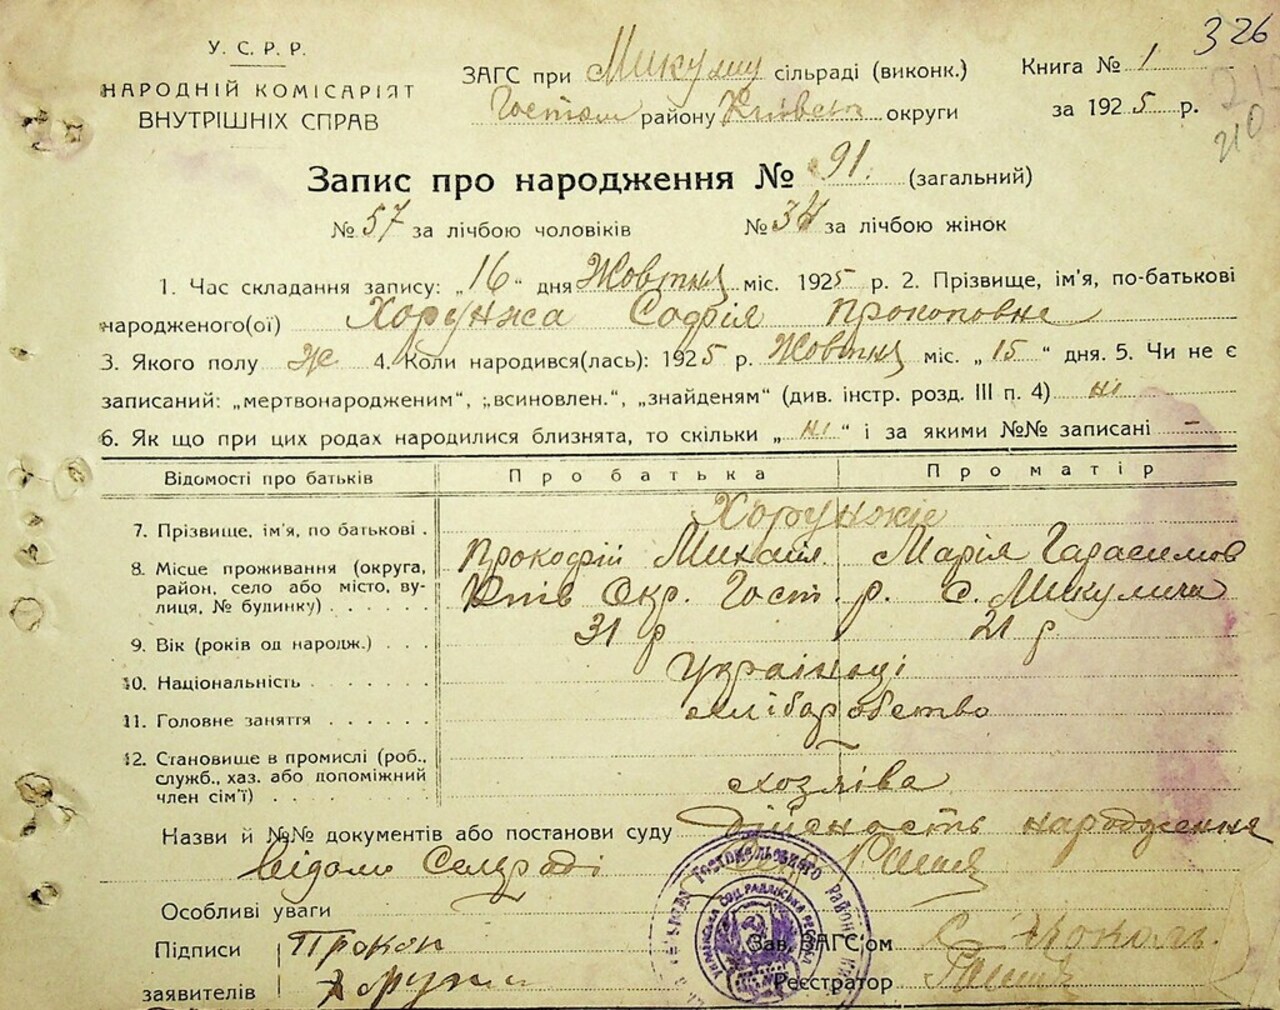 326
У. С. Р. Р.
НАРОДНІЙ КОМІСАРІЯТ
ВНУТРІШНІХ СПРАВ
ЗАГС при Микулич сільраді (виконк.)
Гостом району Київськ округи
Книга № 1
за 1925 р.
210
Запис про народження № 91. (загальний)
№ 57 за лічбою чоловіків № 34 за лічбою жінок
1. Час складання запису: „16" дня Жовтня міс. 1925 р. 2. Прізвище, ім'я, по-батькові
народженого(ої) Хорунжа Софія Прокоповне
3. Якого полу Ж 4. Коли народився(лась): 1925 р. Жовтня міс. „15" дня. 5. Чи не є
записаний: „мертвонародженим", „всиновлен.", „знайденям" (див. інстр. розд. III п. 4) ні
6. Як що при цих родах народилися близнята, то скільки „ні" і за якими №№ записані –
Відомості про батьків Про батька Про матір
7. Прізвище, ім'я, по батькові . Хорунжіе
Прокофій Михайл. Марія Гарасимов
8. Місце проживання (округа, район, село або місто, вулиця, № будинку) . . . . . . Київ Окр. Гост. р. С. Микуличи
9. Вік (років од народж.) . . . 31 р 21 р
10. Національність . . . . . . . Українці
11. Головне заняття . . . . . . хліборобство
12. Становище в промислі (роб., служб., хаз. або допоміжний член сім'ї) . . . . . . . . хозяіва
Назви й №№ документів або постанови суду Дійсность народження
Відомо Селраді
Особливі уваги
Підписи Прокоп
заявителів Хорунж
Зав. ЗАГС'ом
Реєстратор